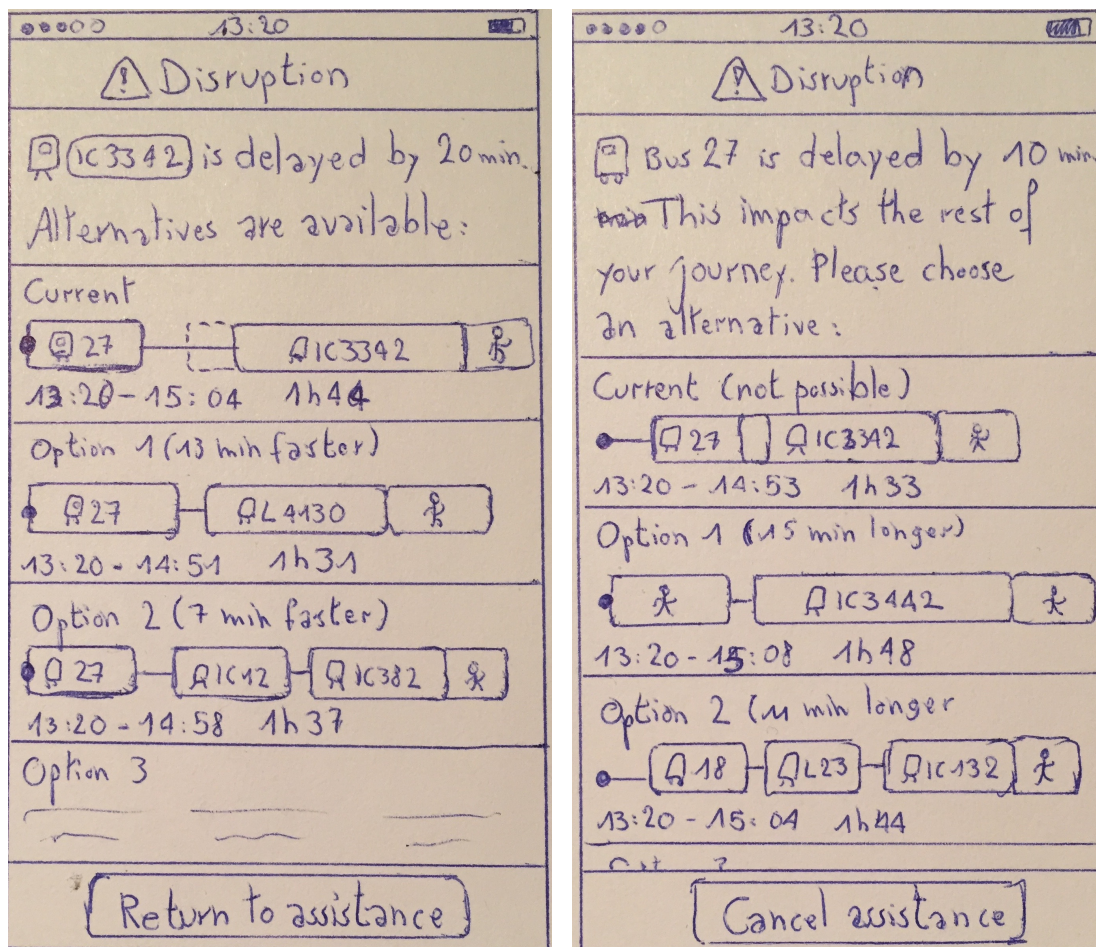 13:20
Disruption
IC3342 is delayed by 20 min.
Alternatives are available:
Current
27 IC3342
13:20 - 15:04 1h44
Option 1 (13 min faster)
27 L4130
13:20 - 14:51 1h31
Option 2 (7 min faster)
27 IC12 IC382
13:20 - 14:58 1h37
Option 3
Return to assistance
13:20
Disruption
Bus 27 is delayed by 10 min.
This impacts the rest of
your journey. Please choose
an alternative:
Current (not possible)
27 IC3342
13:20 - 14:53 1h33
Option 1 (15 min longer)
IC3442
13:20 - 15:08 1h48
Option 2 (11 min longer
18 L23 IC132
13:20 - 15:04 1h44
Cancel assistance